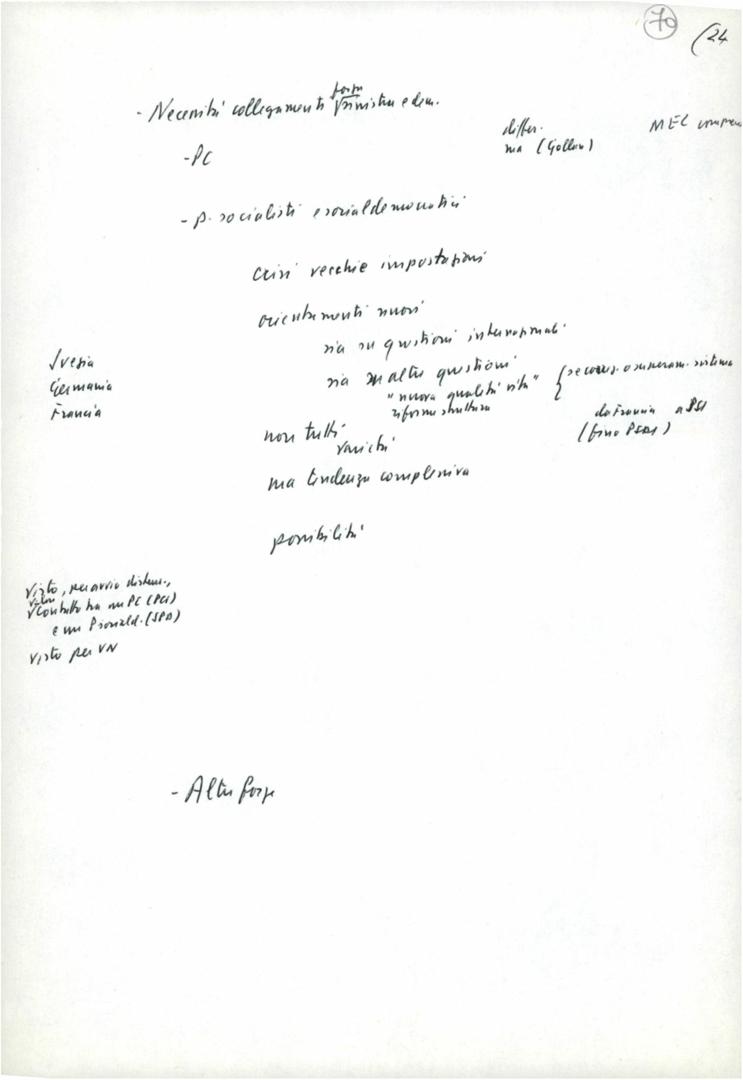 70
(24
- Necessità collegamenti forze sinistra e dem.
differ.
ma (Gollan)
MEC
- PC
- p. socialisti e socialdemocratici
crisi vecchie impostazioni
orientamenti nuovi
sia su questioni internazionali
sia su altre questioni
"nuova qualità vita"
riforme struttura
Svezia
Germania
Francia
sistema
da Francia a PSI
(fino PSDI)
non tutti
varietà
ma tendenza complessiva
possibilità
Visto, per avvio disten.,
valore
contatto tra un PC (PCI)
e un P sociald. (SPD)
Visto per VN
- Altre forze